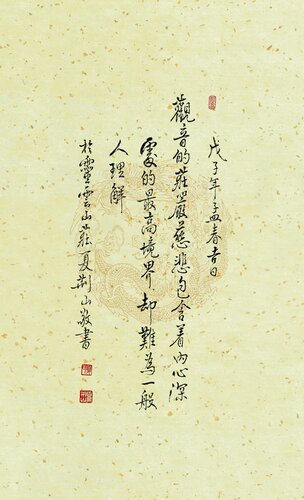 戊子年孟春吉日
觀音的莊嚴慈悲包含着內心深
處的最高境界却難為一般
人理解
於靈雲山莊夏荊山敬書